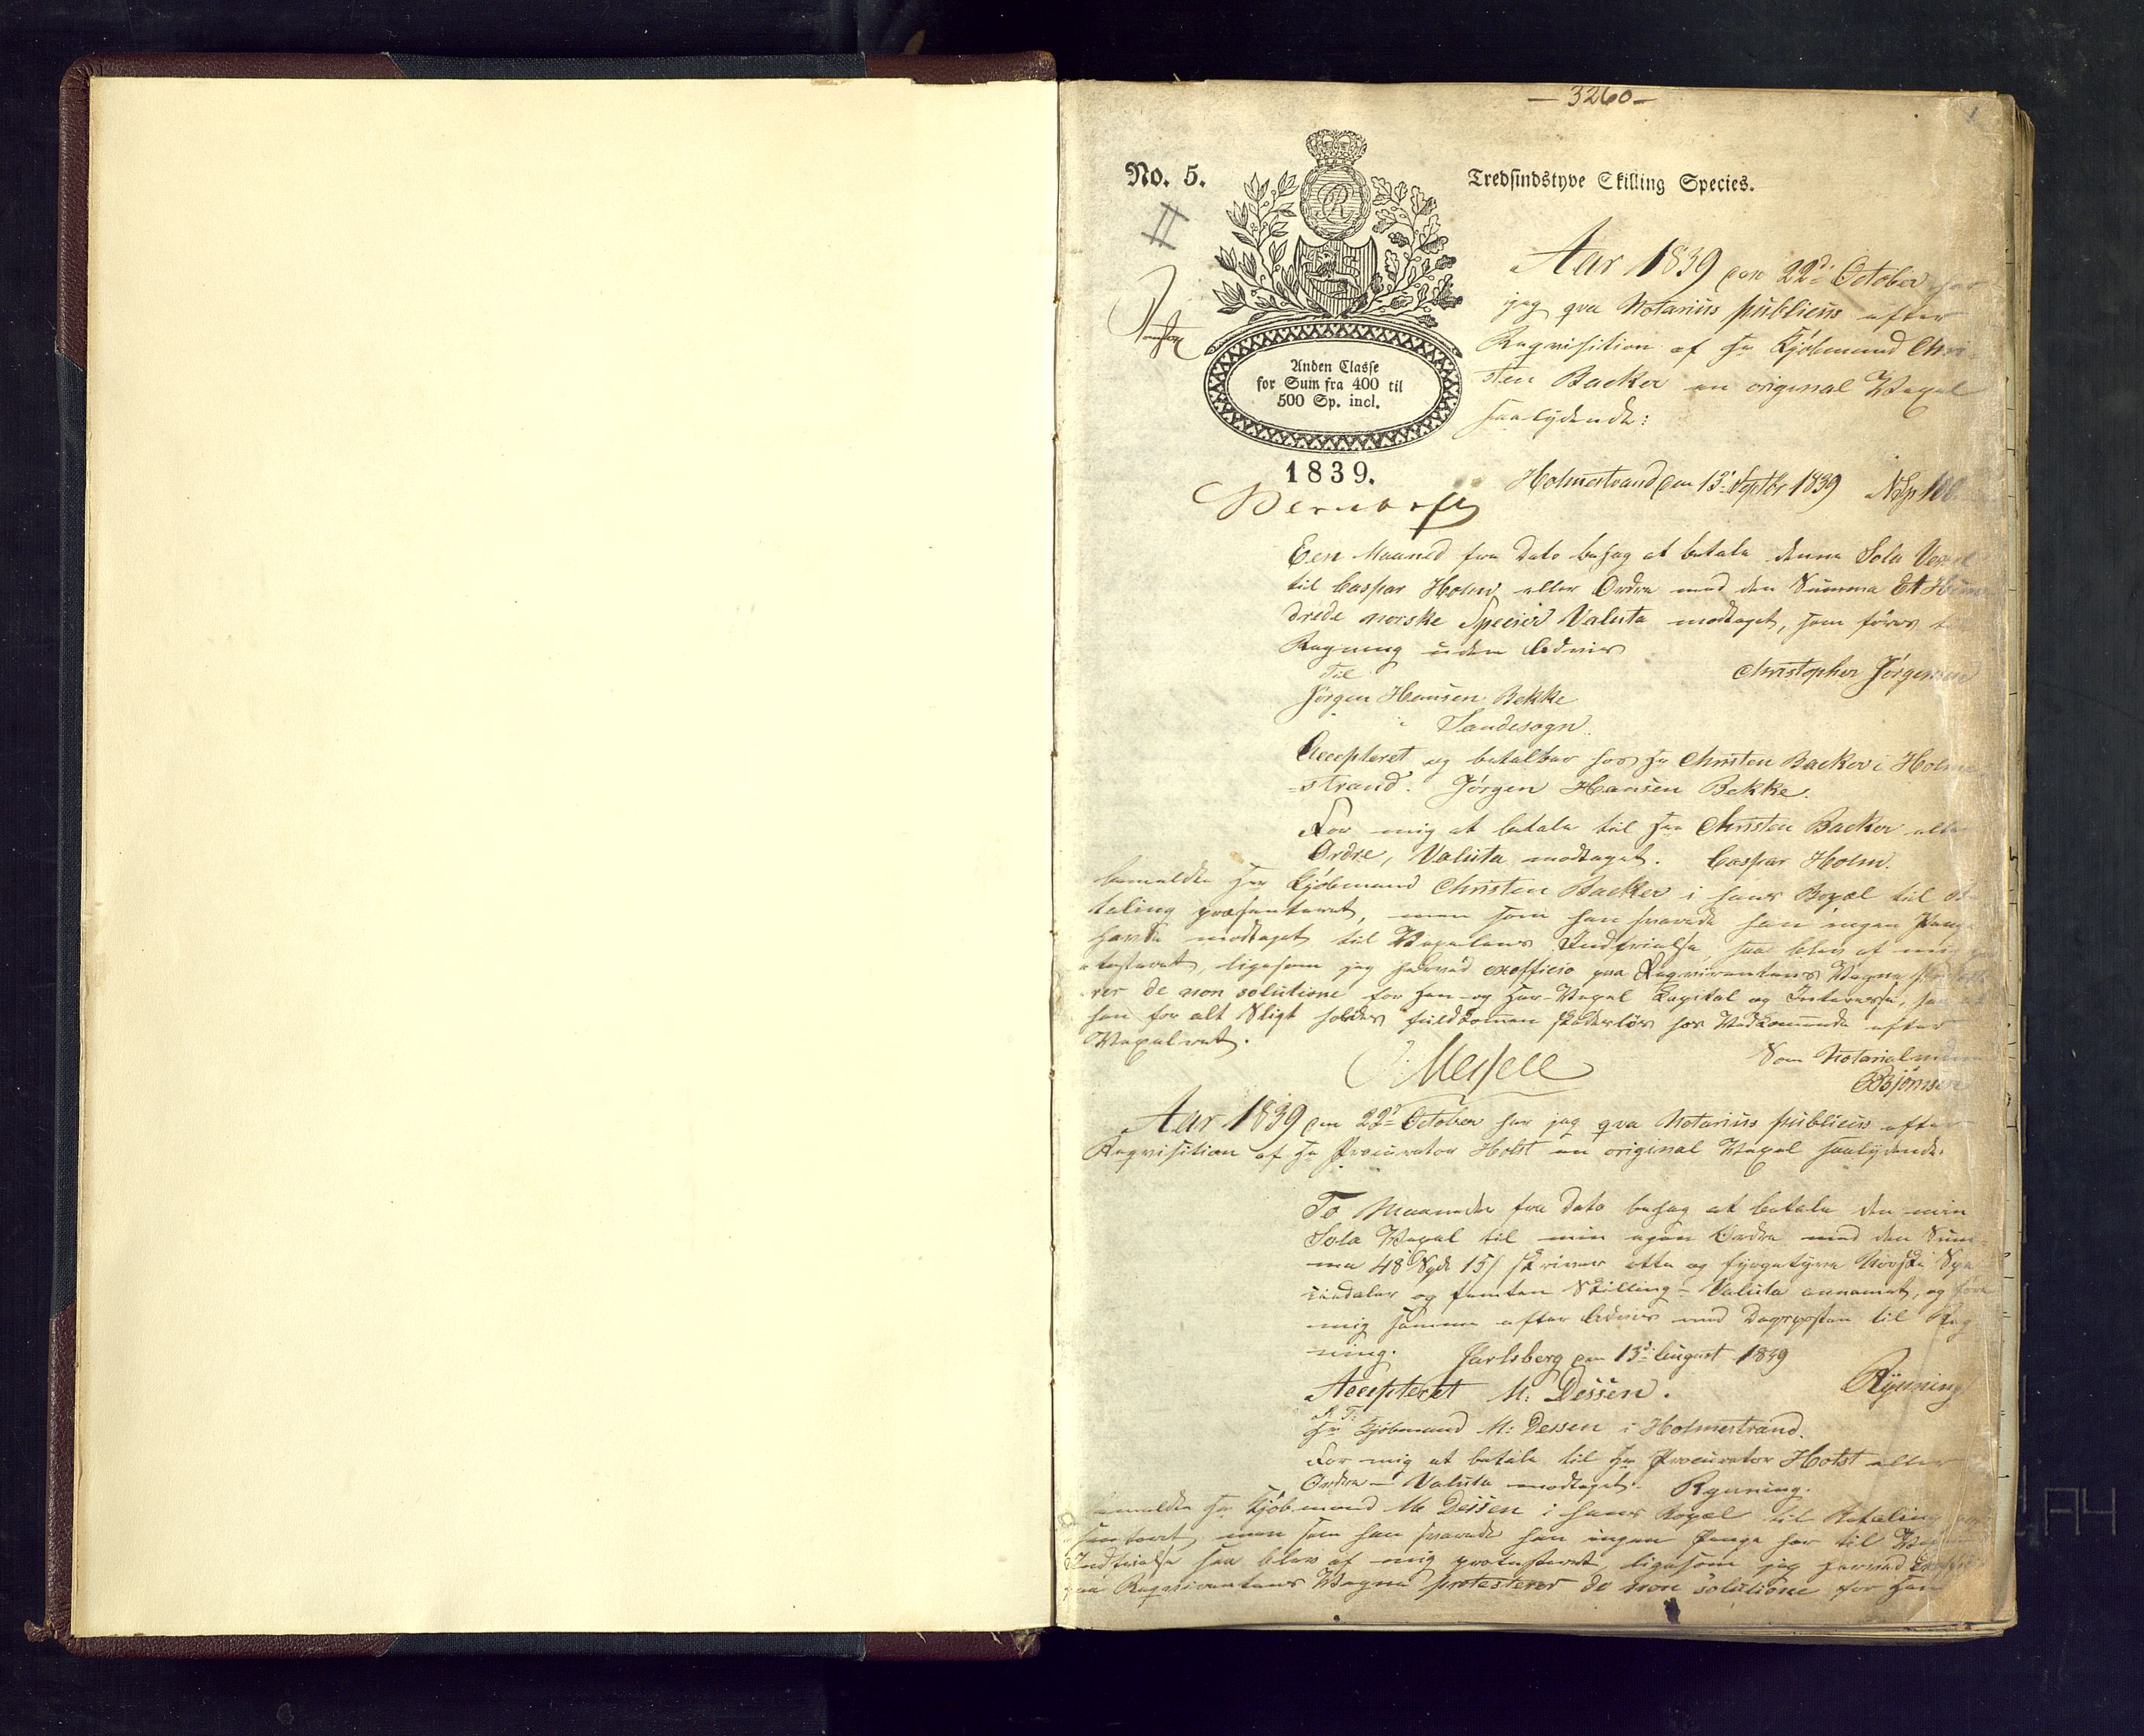 — 3260 —
1
No. 5.
Tredsindstyve Skilling Species.
Anden Classe
for Sum fra 400 til
500 Sp. incl.
1839.
Aar 1839 den 22d October har
jeg qva Notarius publicus efter
Reqvisition af Hr Kjöbmand Chri-
sten Backer en original Vexel
saalydende:
Holmestrand den 13d Septbr 1839
Een Maaned fra Dato behag at betale denne Sola Vexel
til Caspar Holm eller Ordre med den Summa Et Hun-
drede norske Species Valuta modtaget, som föres til
Regning uden Advis
Christopher Jörgensen
Til
Jörgen Hansen Bekke
i Sandesogn.
Accepteret og betalbar hos Hr Christen Backer i Holme-
strand. Jörgen Hansen Bekke.
For mig at betale til Hr Christen Backer eller
Ordre, Valuta modtaget. Caspar Holm.
bemeldte Hr Kjöbmand Christen Backer i hans Bopæl til Be-
taling præsenteret, men som han svarede han ingen Penge
havde modtaget til Vexelens Indfrielse, saa blev af mig pro-
testeret, ligesom jeg herved exofficio paa Reqvirentens Vegne proteste-
rer de non solutione for Hen- og Her-Vexel Capital og Interesse, saa at
han for alt Sligt holdes fuldkommen skadeslös hos Vedkommende efter
Vexelret.
Som Notarialvidne
Aar 1839 den 22d October har jeg qva Notarius publicus efter
Reqvisition af Hr Procurator Holst en original Vexel saalydende:
To Maaneder fra Dato behag at betale den min
Sola Vexel til min egen Ordre med den Sum-
ma 48 Spd 15 s skriver otte og fyrgetyve Norske Spe-
ciedaler og femten Skilling - Valuta annamet, og före
mig samme efter Advis med Dagsposten til Reg-
ning. Jarlsberg den 13d August 1839
Accepteret M: Dessen. Rynning
S. T.
Hr Kjöbmand M: Dessen i Holmestrand.
For mig at betale til Hr Procurator Holst eller
Ordre - Valuta modtaget. Rynning.
bemeldte Hr Kjöbmand M Dessen i hans Bopæl til Betaling præ-
senteret, men som han svarede han ingen Penge har til Vexelens
Indfrielse saa blev af mig protesteret, ligesom jeg herved exofficio
paa Reqvirentens Vegne protesterer de non solutione for Hen